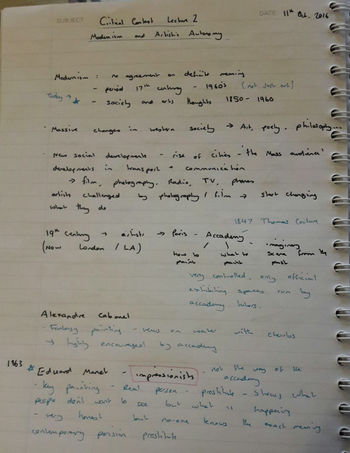 SUBJECT Critical Context Lecture 2 DATE 11th Oct. 2016
Modernism and Artistic Autonomy
Modernism : no agreement on definite meaning
- period 17th century - 1960's [not just art]
Today → - society and arts thoughts 1850 - 1960
- Massive changes in western society → Art, poetry, philosophy...
- New social developments - rise of cities - 'the Mass audience'
developments in transport + communication
→ film, photography, Radio, TV, phones
artists challenged by photography / film → start changing
what they do
1847 Thomas Couture
19th Century → artists → Paris - Academy - imaginary
(Now London / LA) how to what to scene from the
paint paint past
very controlled, only official
exhibiting spaces run by
academy tutors.
Alexandre Cabanel
- Fantasy painting - venus on water with cherubs
→ highly encouraged by academy
1863 Eduard Manet - impressionists - not the way of the
academy
- key painting - Real person - prostitute - shows what
people don't want to see but what is happening
- very honest but no-one knows the exact meaning
contemporary parisian prostitute